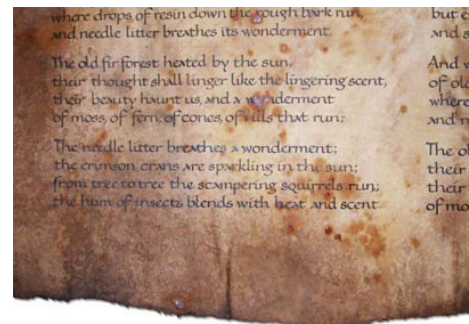 where drops of resin down the rough bark run,
and needle litter breathes its wonderment.
The old fir forest heated by the sun,
their thought shall linger like the lingering scent,
their beauty haunt us, and a wonderment
of moss, of fern, of cones, of rills that run;
The needle litter breathes a wonderment;
the crimson crans are sparkling in the sun;
from tree to tree the scampering squirrels run;
the hum of insects blends with heat and scent.
but
and s
And w
of old
where
and n
The ol
their
their
of mo